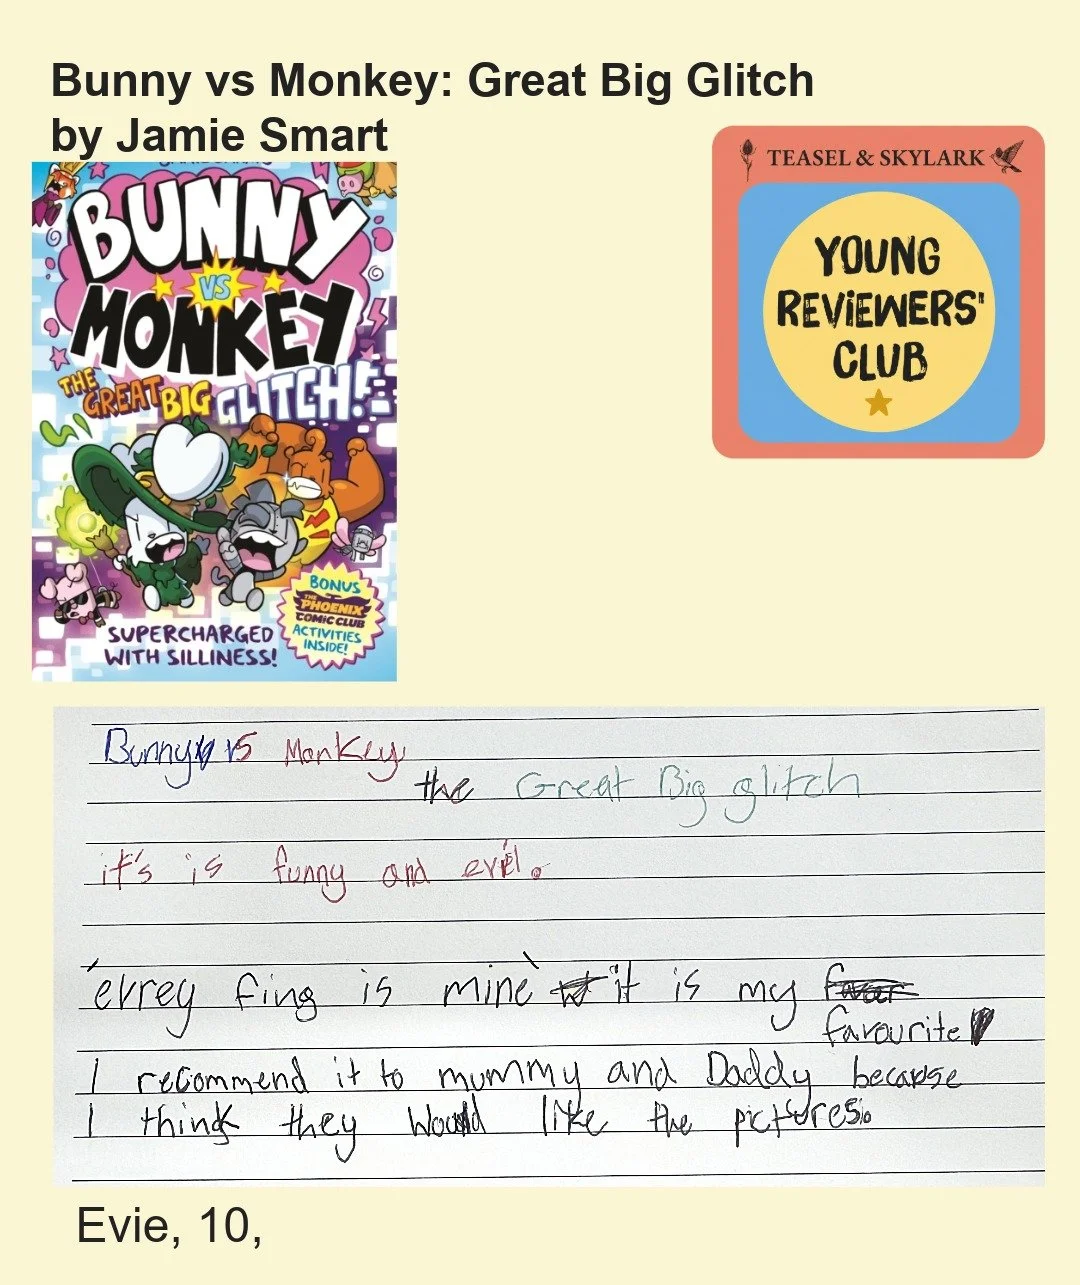 Bunny vs Monkey: Great Big Glitch
by Jamie Smart
BUNNY
VS
MONKEY
THE
GREAT BIG GLITCH!
BONUS
THE
PHOENIX
COMIC CLUB
ACTIVITIES
INSIDE!
SUPERCHARGED
WITH SILLINESS!
TEASEL & SKYLARK
YOUNG
REVIEWERS'
CLUB
Bunny vs Monkey
the Great Big glitch
it's is funny and evil.
'evrey fing is mine' it is my
favourite
I recommend it to mummy and Daddy because
I think they Would like the pictures.
Evie, 10,